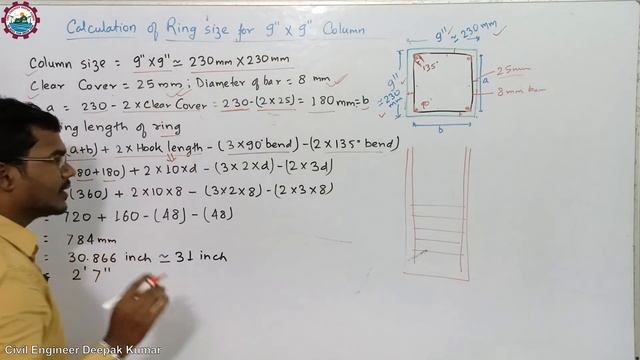 Calculation of Ring size for 9" x 9" Column
Column size = 9"x9" ≃ 230mm x 230mm
Clear Cover = 25mm; Diameter of bar = 8 mm
a = 230 - 2 x Clear Cover = 230-(2x25) = 180mm = b
length of ring
a+b) + 2 x Hook length - (3 x 90° bend) - (2 x 135° bend)
80+180) + 2 x 10 x d - (3 x 2 x d) - (2 x 3d)
(360) + 2 x 10 x 8 - (3 x 2 x 8) - (2 x 3 x 8)
= 720 + 160 - (48) - (48)
= 784mm
= 30.866 inch ≃ 31 inch
2' 7"
9" ≃ 230mm
9"
≃ 230
mm
135°
90°
a
b
25mm
8mm bar
Civil Engineer Deepak Kumar